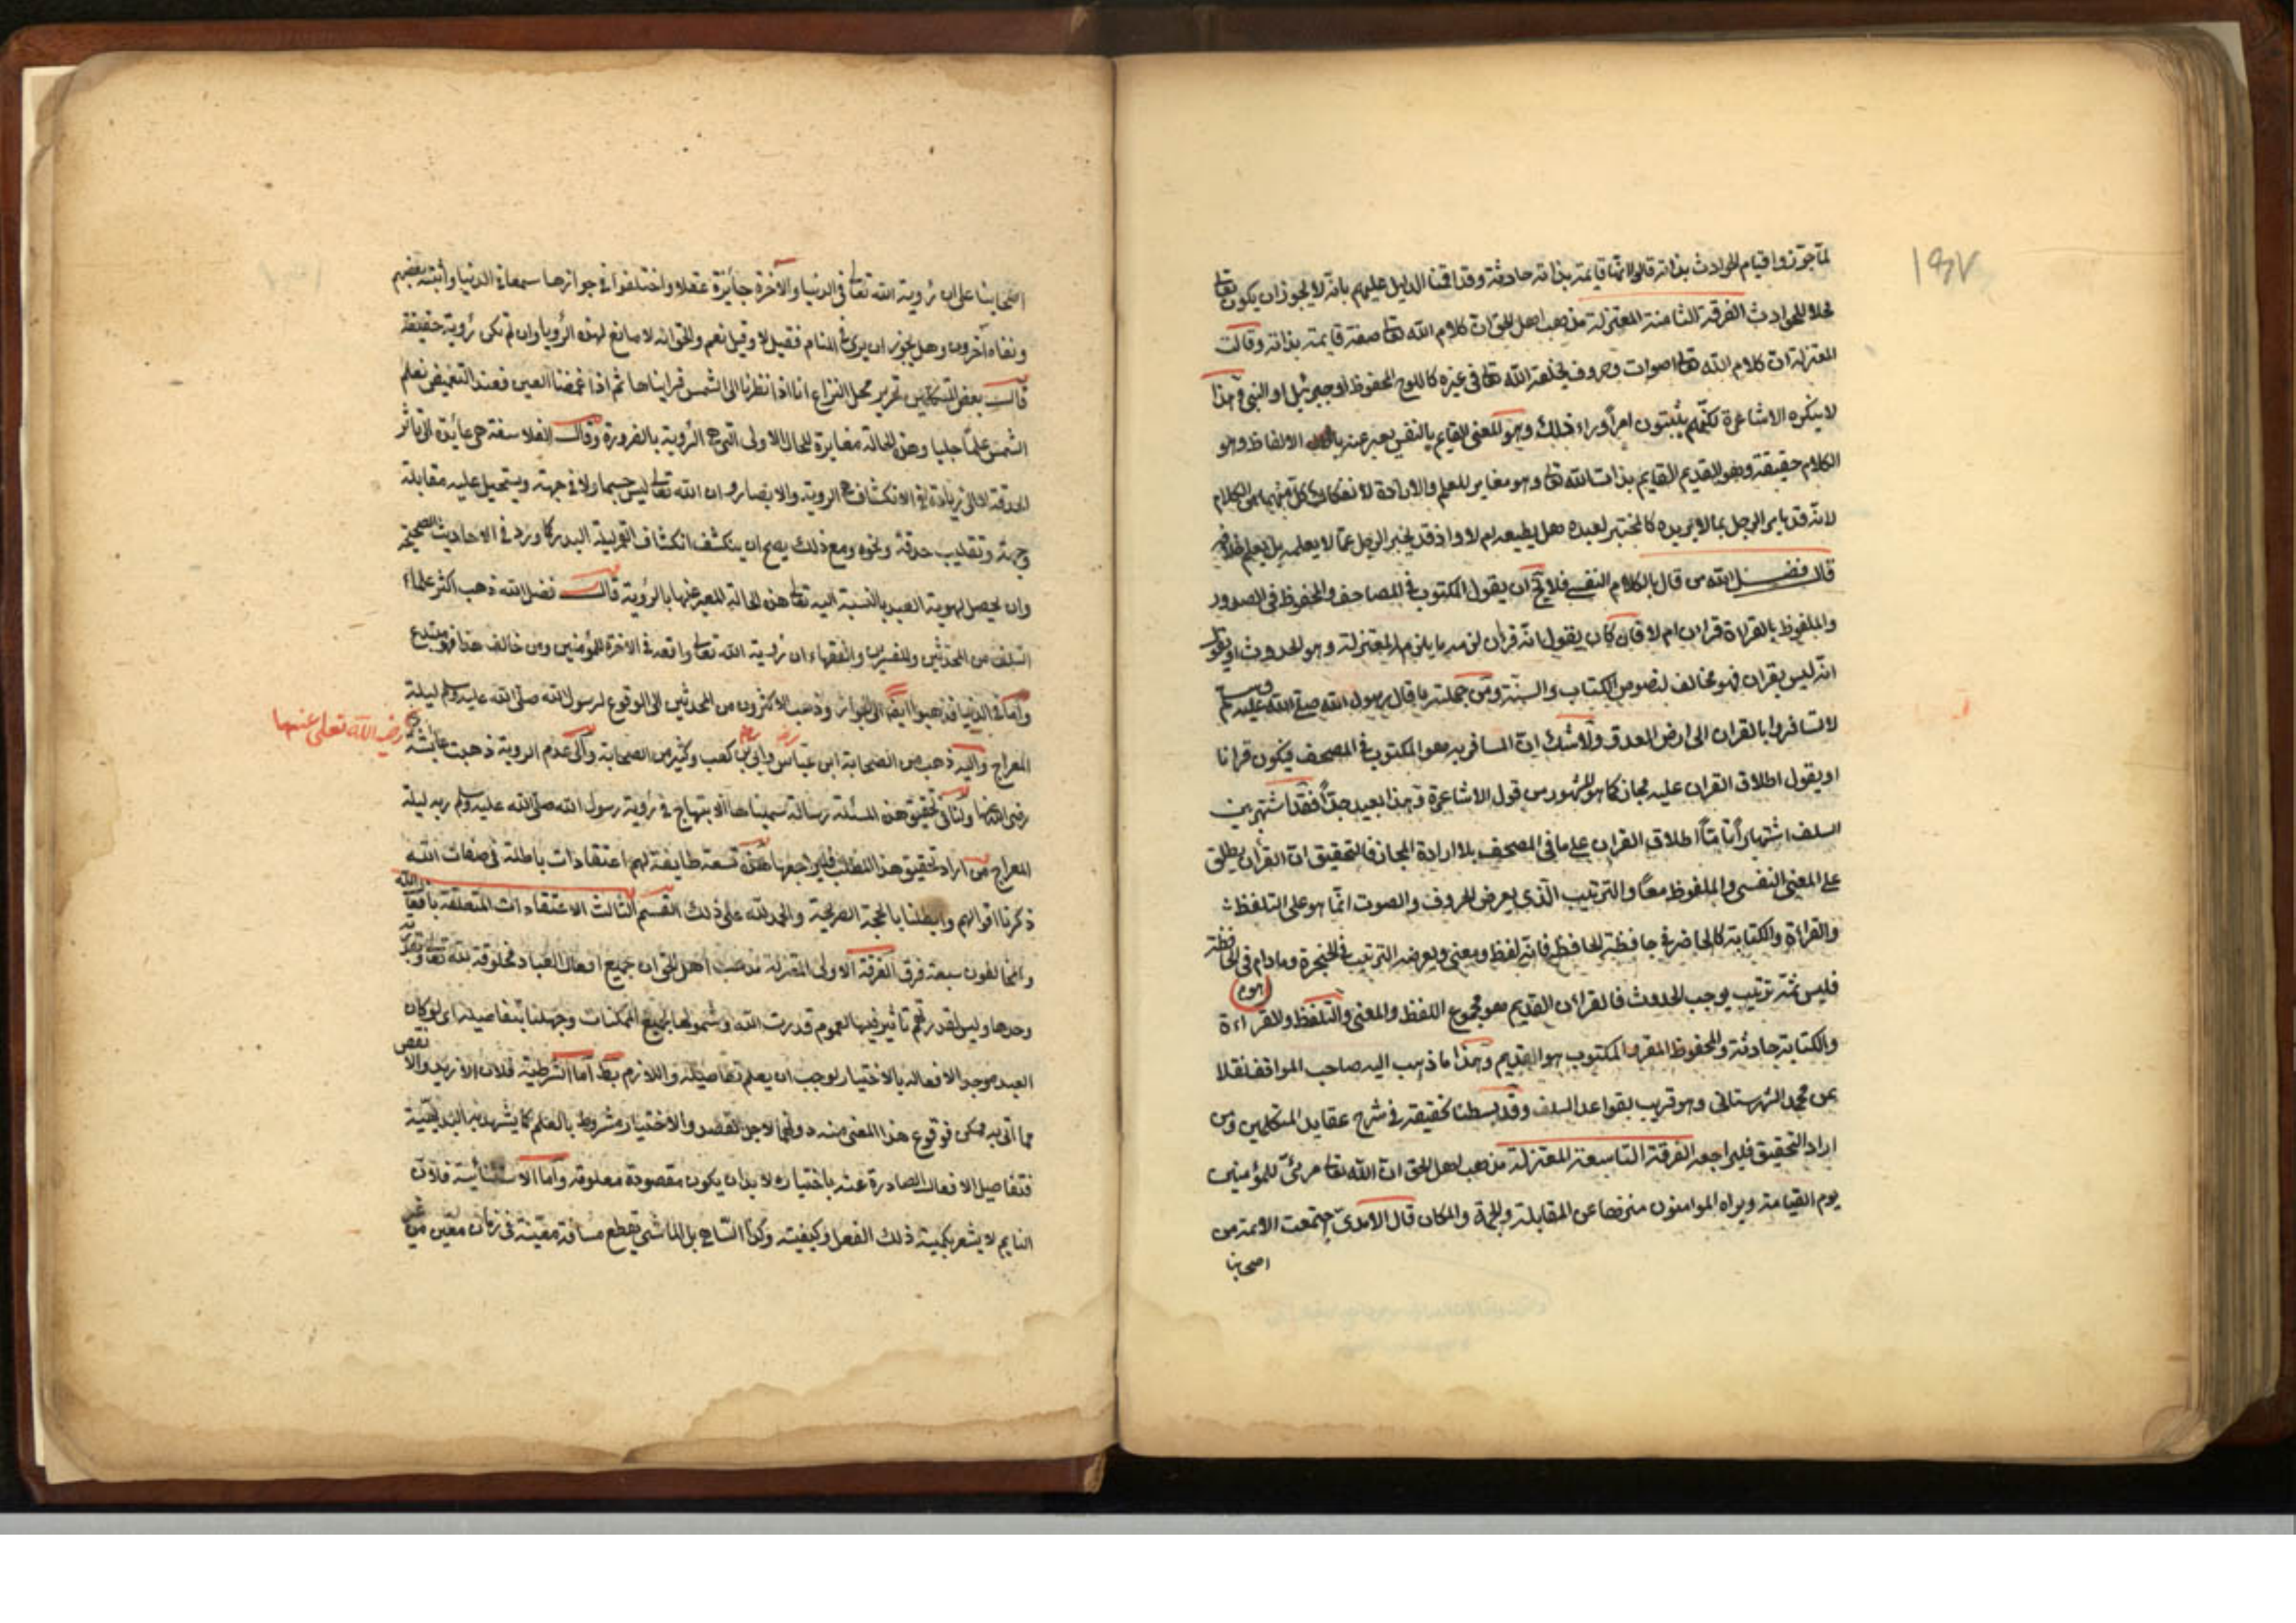 ١٤٧
لما جوزوا قيام الحوادث بذاته قالوا انها قايمة بذاته حادثة وقد اقمنا الدليل عليهم بانه لا يجوز ان يكون تعالى
محلا للحوادث الفرقة الثامنة المعتزلة مذهب اهل الحق ان كلام الله تعالى صفة قايمة بذاته وقالت
المعتزلة ان كلام الله تعالى اصوات وحروف يخلقه الله تعالى في غيره كاللوح المحفوظ او جبرئيل او النبي وهذا
لا ينكره الاشاعرة لكنهم يثبتون امرا وراء ذلك وهو المعنى القايم بالنفس يعبر عنه الالفاظ وهو
الكلام حقيقة وهو القديم القايم بذات الله تعالى وهو مغاير للعلم والارادة لانفكاك كل منهما عن الكلام
لانه قد يامر الرجل بما لا يريده كالمختبر لعبده هل يطيعه ام لا واذ قد يخبر الرجل عما لا يعلمه بل يعلم خلافه
قال فضل الله من قال بالكلام النفسي فلا يخ ان يقول المكتوب في المصاحف والمحفوظ في الصدور
والملفوظ بالقراءة قران ام لا فان كان يقول انه قران لزمه ما يلزم المعتزلة وهو الحدوث او يقول
انه ليس بقران فهو مخالف لنصوص الكتاب والسنة ومن جملته ما قال رسول الله صلى الله عليه وسلم
لا تسافروا بالقران الى ارض العدو ولا شك ان المسافر به هو المكتوب في المصحف فيكون قرانا
او يقول اطلاق القران عليه مجاز كما هو المشهور من قول الاشاعرة وهذا بعيد جدا فقد اشتهر بين
السلف اشتهارا تاما اطلاق القران على ما في المصحف بلا ارادة المجاز فالتحقيق ان القران يطلق
على المعنى النفسي والملفوظ معا والترتيب الذي يعرض للحروف والصوت انما هو على التلفظ
والقراءة والكتابة كالحاضر في حافظة الحافظ فانه لفظ ومعنى ويعرضه الترتيب في الحنجرة وما دام في الحافظة
فليس ثمة ترتيب يوجب الحدوث فالقران القديم هو مجموع اللفظ والمعنى والتلفظ والقراءة
والكتابة حادثة والمحفوظ المقرو المكتوب هو القديم وهذا ما ذهب اليه صاحب المواقف نقلا
عن محمد الشهرستاني وهو قريب بقواعد السلف وقد بسطنا تحقيقه في شرح عقايد المتكلمين ومن
اراد التحقيق فليراجعه الفرقة التاسعة المعتزلة مذهب اهل الحق ان الله تعالى مرئي للمؤمنين
يوم القيامة ويراه المؤمنون منزها عن المقابلة والجهة والمكان قال الامدي اجتمعت الائمة من
اصحابنا
اصحابنا على ان رؤية الله تعالى في الدنيا والآخرة جائزة عقلا واختلفوا في جوازها سمعا في الدنيا وأثبته بعضهم
ونفاه آخرون وهل يجوز ان يرى في المنام فقيل لا وقيل نعم والحق انه لا مانع لهذه الرؤيا وان لم تكن رؤية حقيقة
قالت بعض المتكلمين تحرير محل النزاع انا اذا نظرنا الى الشمس فرايناها ثم اذا غمضنا العين فعند التغميض نعلم
الشمس علما جليا وهذه الحالة مغايرة للحال الاولى التي هي الرؤية بالضرورة وقالت الفلاسفة هي عائدة الى تاثر
الحدقة لا الى زيادة في الانكشاف هي الرؤية والابصار وان الله تعالى ليس جسما ولا في جهة ويستحيل عليه مقابلة
وجهة وتقليب حدقة ونحوه ومع ذلك يصح ان ينكشف انكشاف القمر ليلة البدر كما ورد في الاحاديث الصحيحة
وان يحصل لهوية العبد بالنسبة اليه تعالى هذه الحالة المعبر عنها بالرؤية قال فضل الله ذهب اكثر علماء
السلف من المحدثين والمفسرين والفقهاء ان رؤية الله تعالى واقعة في الاخرة للمؤمنين ومن خالف هذا فهو مبتدع
واما في الدنيا فذهبوا ايضا الى الجواز وذهب الاكثرون من المحدثين الى الوقوع لرسول الله صلى الله عليه وسلم ليلة
المعراج واليه ذهب من الصحابة ابن عباس وابي بن كعب وكثير من الصحابة والى عدم الروية ذهبت عائشة
رضي الله تعالى عنها
رضي الله عنها ولنا في تحقيق هذه المسئلة رسالة سميناها الابتهاج في رؤية رسول الله صلى الله عليه وسلم ربه ليلة
المعراج من اراد تحقيق هذا المطلب فليراجعها هذه تسعة طايفة لهم اعتقادات باطلة في صفات الله
ذكرنا اقوالهم وابطلنا بالحجة الصريحة والحمد لله على ذلك القسم الثالث الاعتقادات المتعلقة بافعال الله
والمخالفون سبعة فرق الفرقة الاولى المعتزلة مذهب اهل الحق ان جميع افعال العباد مخلوقة لله تعالى وبقدرته
وحدها وليس لقدرتهم تأثير فيها لعموم قدرت الله وشمولها بجميع الممكنات وجهلنا بتفاصيله اي لو كان
العبد موجد الافعاله بالاختيار لوجب ان يعلم تفاصيله واللازم بط اما الشرطية فلان الازيد والانقص
مما اتى به ممكن فوقوع هذا المعنى منه دونهما لاجل القصد والاختيار مشروط بالعلم كما يشهد به البديهية
فتفاصيل الافعال الصادرة عنه باختياره لا بد ان يكون مقصودة معلومة واما الاستثنائية فلان
النايم لا يشعر بكمية ذلك الفعل وكيفيته وكذا الساهي بل الماشي يقطع مسافة معينة في زمان معين من غير